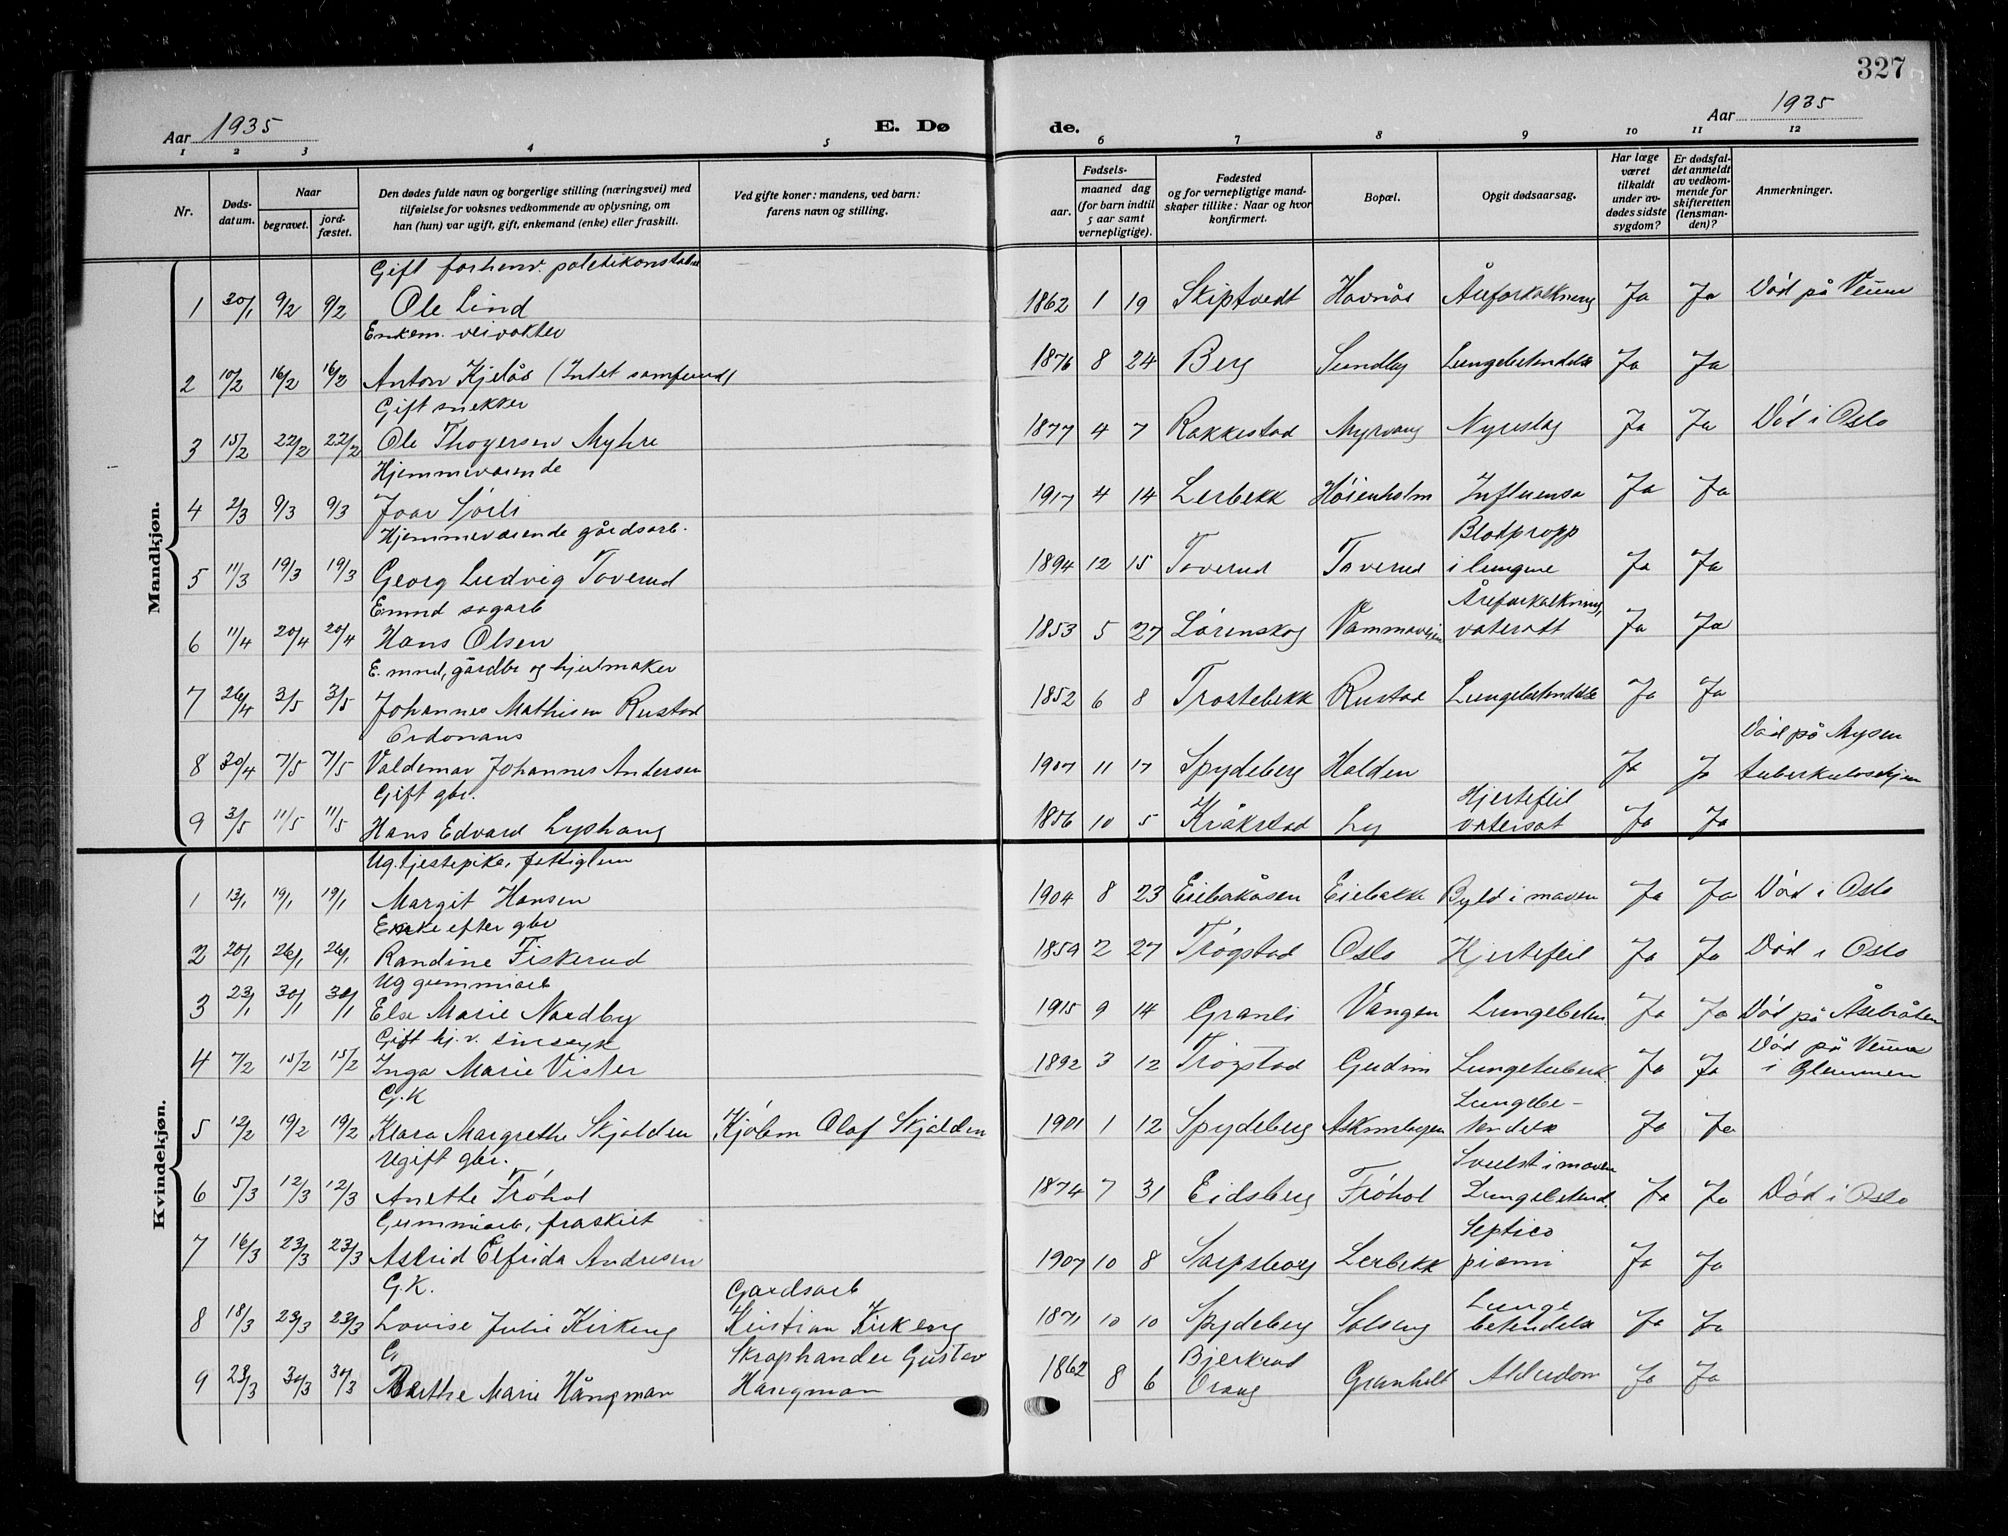 327
Aar 1935
E. Dø
de.
Aar 1935
1 2 3 4 5 6 7 8 9 10 11 12
Nr.
Døds-
datum.
Naar
begravet.
jord-
fæstet.
Den dødes fulde navn og borgerlige stilling (næringsvei) med
tilføielse for voksnes vedkommende av oplysning, om
han (hun) var ugift, gift, enkemand (enke) eller fraskilt.
Ved gifte koner: mandens, ved barn:
farens navn og stilling.
Fødsels-
aar.
maaned dag
(for barn indtil
5 aar samt
vernepligtige).
Fødested
og for vernepligtige mand-
skaper tillike: Naar og hvor
konfirmert.
Bopæl.
Opgit dødsaarsag.
Har læge
været
tilkaldt
under av-
dødes sidste
sygdom?
Er dødsfal-
det anmeldt
av vedkom-
mende for
skifteretten
(lensman-
den)?
Anmerkninger.
Mandkjøn.
Gift forhenv. politikonstabel
1 30/1 9/2 9/2 Ole Lind 1862 1 19 Skiptvedt Havnås Åreforkalkning Ja Ja Død på Veum
Enkem. veivokter
2 10/2 16/2 16/2 Anton Kjelås (Intet samfund) 1876 8 24 Berg Sundby Lungebetendelse Ja Ja
Gift snekker
3 15/2 22/2 22/2 Ole Thoyersen Myhre 1877 4 7 Rakkestad Myrvang Nyreslag Ja Ja Død i Oslo
Hjemmeværende
4 2/3 9/3 9/3 Joar Sørli 1917 4 14 Lerbekk Høienholm Influensa Ja Ja
Hjemmeværende gårdsarb. Blodpropp
5 11/3 19/3 19/3 Georg Ludvig Toverud 1894 12 15 Toverud Toverud i lungene Ja Ja
Emnd sagarb Åreforkalkning,
6 11/4 20/4 20/4 Hans Olsen 1853 5 27 Lørenskog Vammaveien vatersott Ja Ja
E. mnd, gårdbr og hjulmaker
7 26/4 3/5 3/5 Johannes Mathisen Rustad 1852 6 8 Trostebekk Rustad Lungebetendelse Ja Ja
Ordonans Død på Mysen
8 30/4 7/5 7/5 Valdemar Johannes Andersen 1907 11 17 Spydeberg Halden Ja Ja tuberkulosehjem
Gift gbr. Hjertefeil
9 3/5 11/5 11/5 Hans Edvard Lyshaug 1856 10 5 Kråkstad Ly vatersot Ja Ja
Kvindekjøn.
Ug. tjestepike, fattiglem
1 13/1 19/1 19/1 Margit Hansen 1904 8 23 Eiebakåsen Eiebakke Byld i maven Ja Ja Død i Oslo
Enke efter gbr
2 20/1 26/1 26/1 Randine Fiskerud 1859 2 27 Trøgstad Oslo Hjertefeil Ja Ja Død i Oslo
Ug gummiarb
3 23/1 30/1 30/1 Else Marie Nordby 1915 9 14 Granli Vangen Lungebeten. Ja Ja Død på Åsebråten
Gift hj. v. sinssyk Død på Veum
4 7/2 15/2 15/2 Inga Marie Vister 1892 3 12 Trøgstad Gudim Lungetuberk. Ja Ja i Glemmen
G.K Lungebe-
5 12/2 19/2 19/2 Klara Margrethe Skjolden Kjøbm Olaf Skjolden 1901 1 12 Spydeberg Askimbyen tendelse Ja Ja
Ugift gbr. Svulst i maven
6 5/3 12/3 12/3 Anethe Frøhol 1874 7 31 Eidsberg Frøhol Lungebetend. Ja Ja Død i Oslo
Gummiarb, fraskilt Septico
7 16/3 23/3 23/3 Astrid Elfrida Andresen 1907 10 8 Sarpsborg Lerbekk piemi Ja Ja
G.K. Gardsarb Lunge
8 18/3 23/3 23/3 Lovise Julie Kirkeng Kristian Kirkeng 1871 10 10 Spydeberg Solseng betendelse Ja Ja
G. Skraphandler Gustav Bjerkrud
9 23/3 30/3 30/3 Berthe Marie Hångman Hangman 1862 8 6 Granholt Alderdom Ja Ja